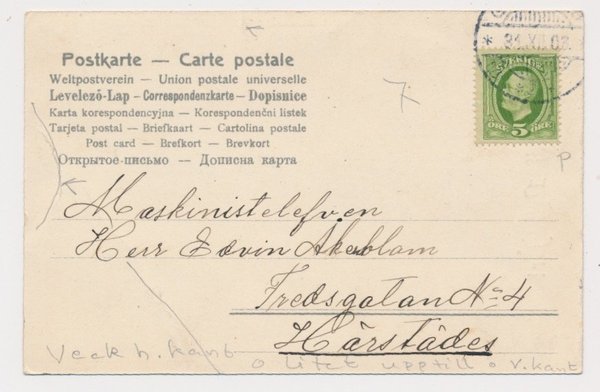 Postkarte — Carte postale
Weltpostverein — Union postale universelle
Levelező-Lap — Correspondenzkarte — Dopisnice
Karta korespondencyjna — Korespondenční listek
Tarjeta postal — Briefkaart — Cartolina postale
Post card — Brefkort — Brevkort
Открытое письмо — Дописна карта
SVERIGE
ÖRE 5 ÖRE
P
Maskinistelefven
Herr Edvin Akerblam
Fredsgatan No 4
Härstädes
Veck h. kant
o litet upptill o v. kant